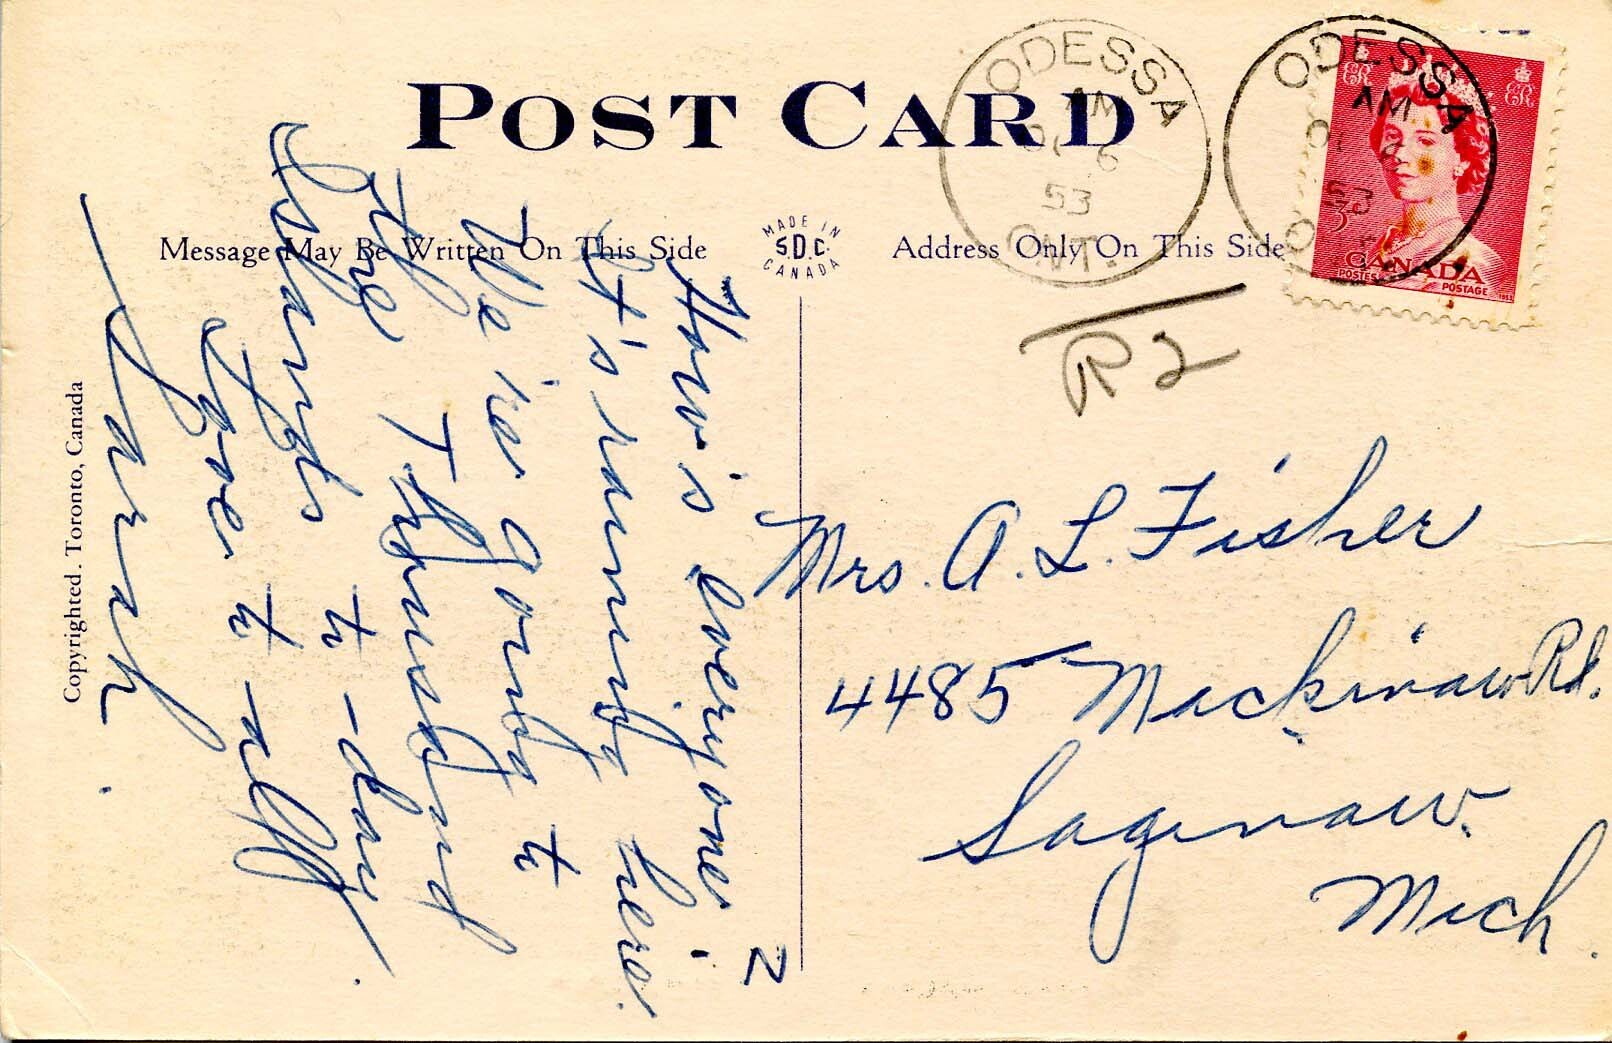 POST CARD
Message May Be Written On This Side
MADE IN
S.D.C.
CANADA
Address Only On This Side
Copyrighted. Toronto, Canada
ODESSA
AM
6
53
ONT.
ODESSA
AM
53
E R
E R
3
CANADA
POSTES
POSTAGE
1953
R2
How's everyone?
It's raining here.
We're going to
the Thousand
Islands to-day
if
Love to -all
Sarah.
Mrs. A. L. Fisher
4485 Mackinaw Rd.
Saginaw.
Mich.